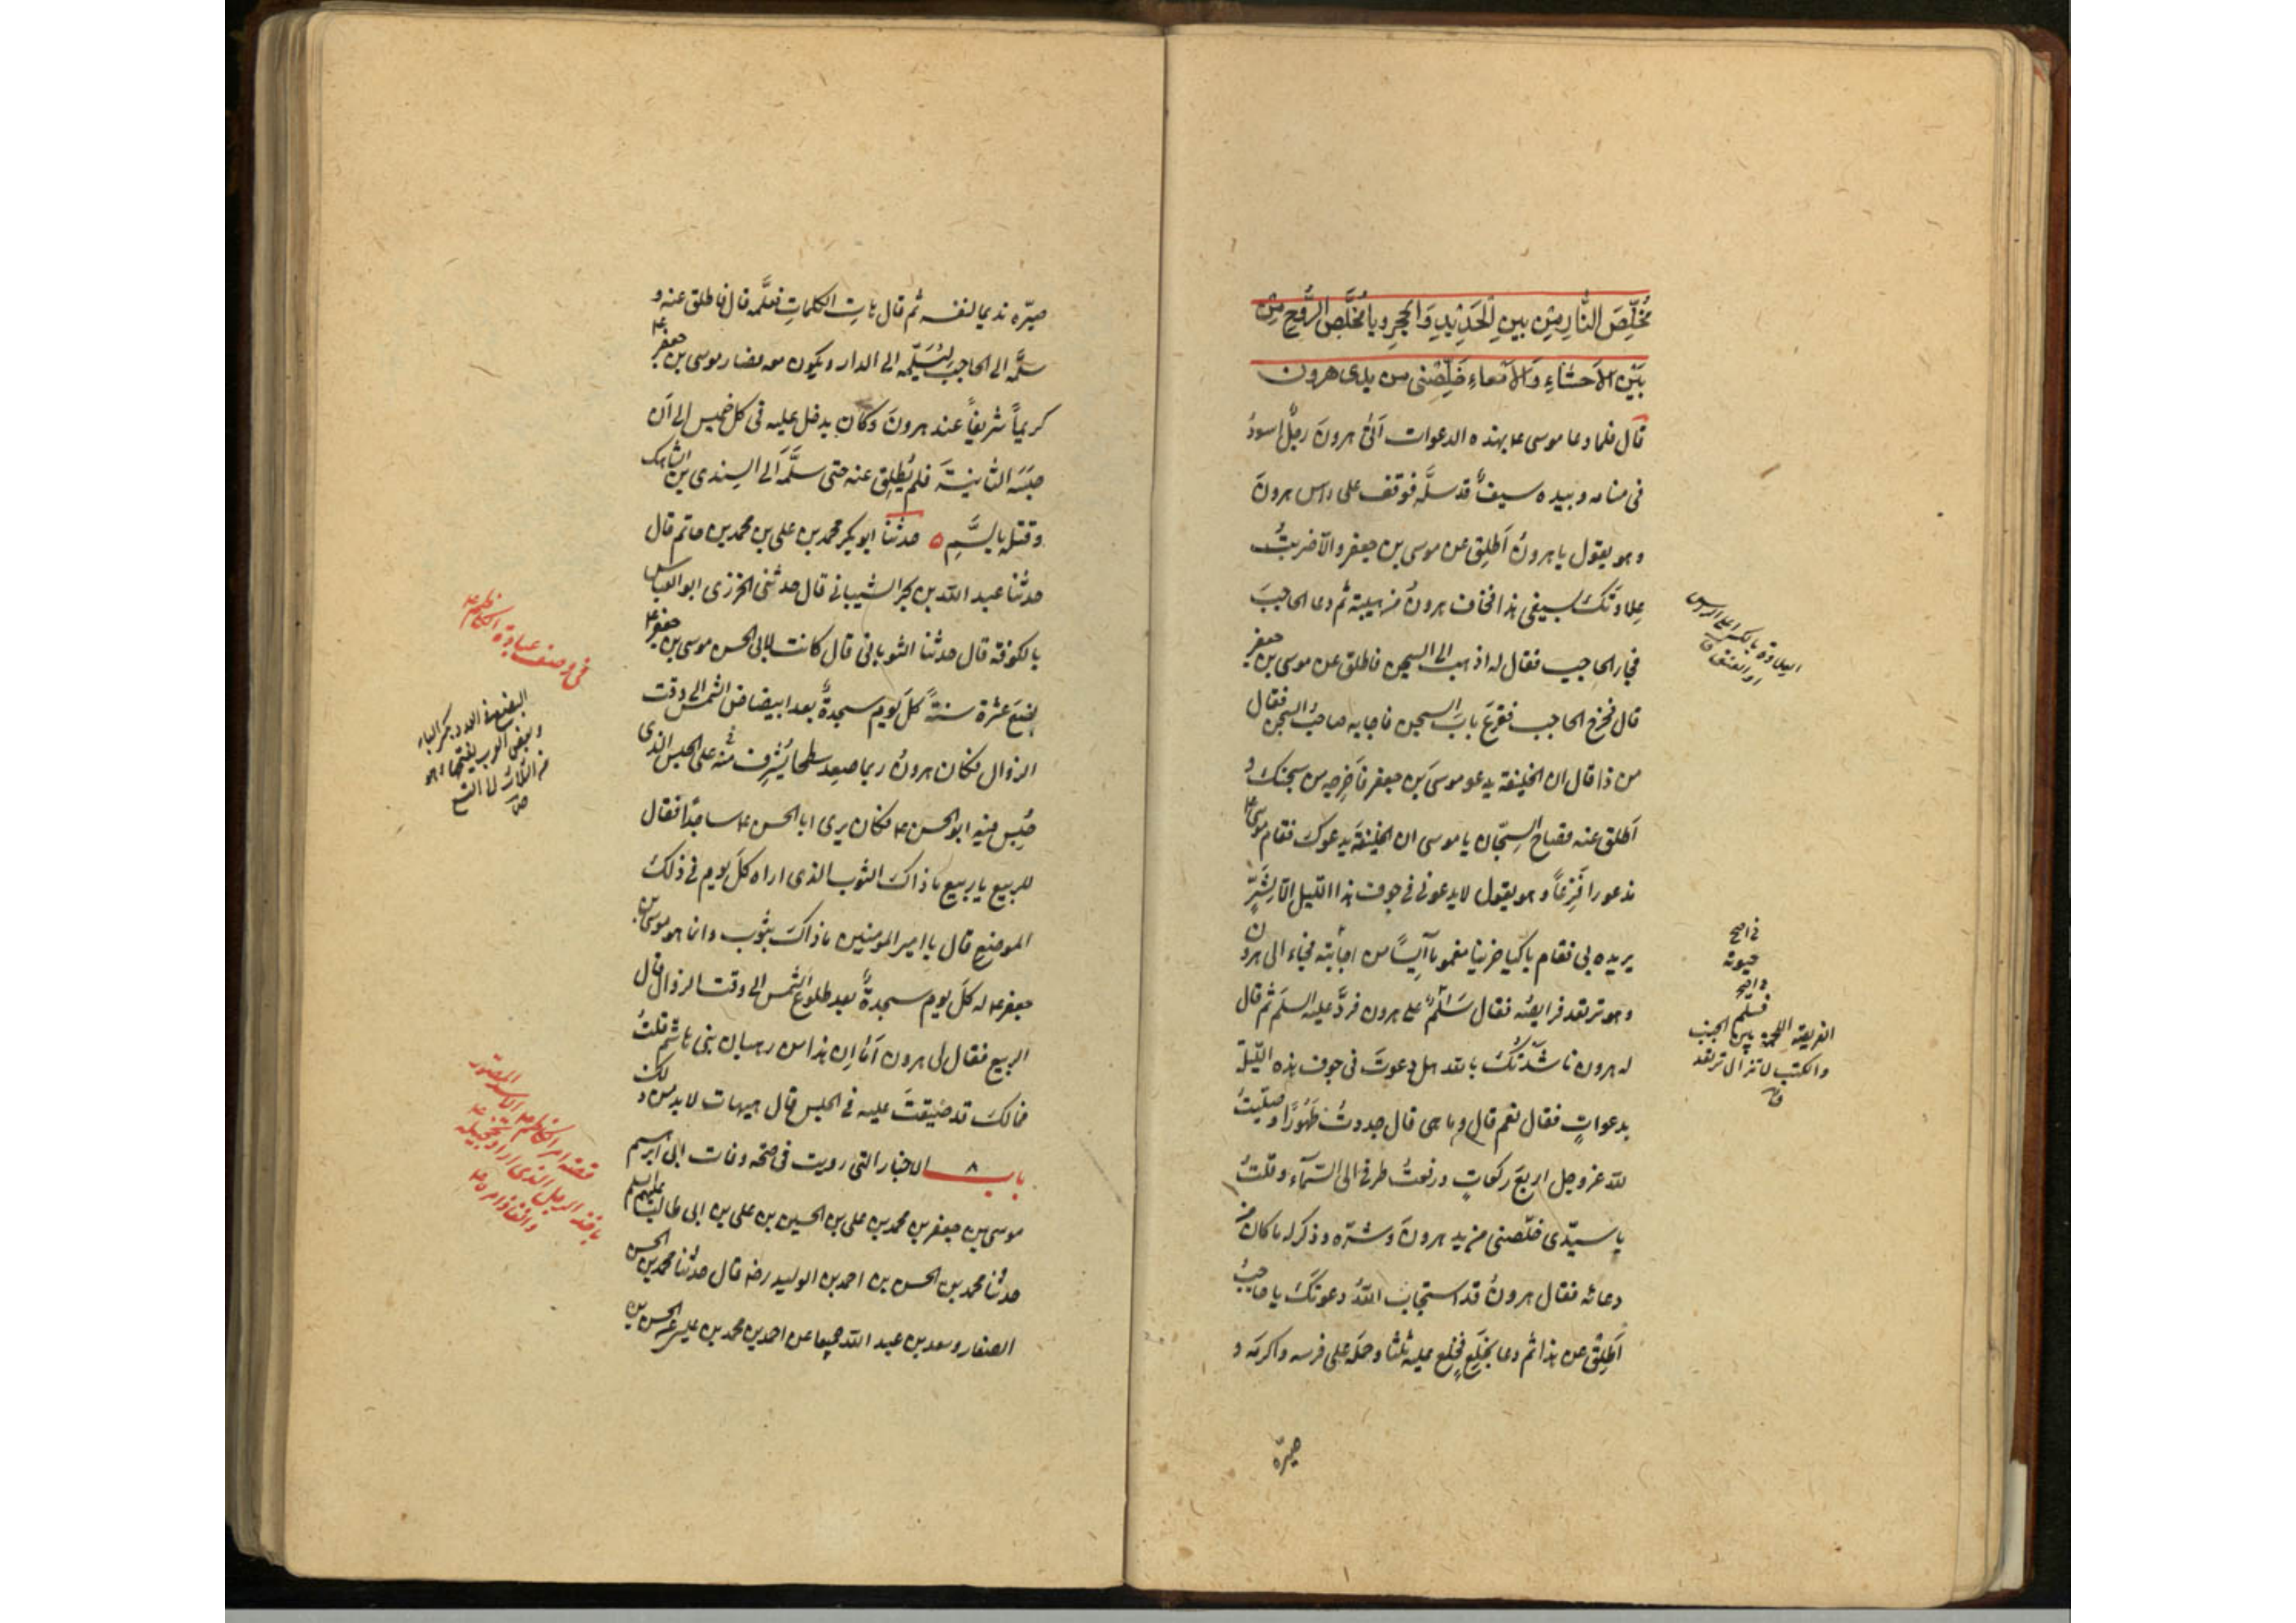 مُخَلِّصَ النَّارِ مِنْ بَيْنِ الْحَدِيْدِ وَالْحَجَرِ وَيَا مُخَلِّصَ الرُّوْحِ مِنْ
بَيْنِ الْاَحْشَاءِ وَالْاَمْعَاءِ خَلِّصْنِى مِنْ يَدَىْ هرون
قال فلما دعا موسى ع بهذه الدعوات اَتىٰ هرونَ رجلٌ اسودُ
فى منامه وبيده سيفٌ قد سلَّه فوقف على راس هرونَ
وهو يقول يا هرونُ اَطلِق عن موسى بن جعفر والّا ضربتُ
عِلاوَتَكَ بسيفى هذا فخاف هرونُ من هيبته ثم دعا الحاجبَ
فجاء الحاجب فقال له اذهب الى السجن فاطلق عن موسى بن جعفر
قال فخرج الحاجب فقرعَ بابَ السجن فاجابه صاحبُ السجن فقال
من ذا قال ان الخليفة يدعو موسى بن جعفر فاَخرِجه من سجنك و
اَطلق عنه فصاح السجّان يا موسى ان الخليفة يدعوك فقام موسى ع
مذعورا فَزِعاً وهو يقول لا يدعونى فى جوف هذا الليل اِلّا لِشَرٍّ
يريده بى فقام باكيا حزينا مغموما آيِساً من حياته فجاء الى هرون
وهو ترتعد فرايصُه فقال سَلامٌ على هرون فردَّ عليه السلم ثم قال
له هرون ناشَدتُكَ بالله هل دعوتَ فى جوف هذه الليلة
بدعواتٍ فقال نعم قال وما هى قال جددتُ طَهُورًا وصلّيتُ
لله عز وجل اربعَ ركعاتٍ ورفعتُ طرفى الى السّمآء وقلتُ
يا سيّدى خلّصنى من يد هرونَ وشرّه وذكر له ما كان من
دعائه فقال هرونُ قد استجاب اللهُ دعوتَكَ يا حاجبُ
اَطلِق عن هذا ثم دعا بخِلَعٍ فخلع عليه ثلثا وحمله على فرسه واكرمه و
صيّره
العلاوة بالكسر اعلى الراس
او العنق ق
الفريصة اللحمة بين الجنب
والكتف لا تزال ترتعد
صيّره نديما لنفسه ثم قال هاتِ الكلماتِ فعلَّمه قال فاطلق عنه و
سلَّمه الى الحاجب ليُسَلِّمه الى الدار ويكون معه فصار موسى بن جعفر ع
كريماً شريفاً عند هرونَ وكان يدخل عليه فى كل خميس الى اَن
حبَسَه الثانيةَ فلم يُطلِق عنه حتى سلَّمه اَلى السندى بن الشاهك
وقتله بالسَّمِ ه حدثنا ابو بكر محمد بن على بن محمد بن حاتم قال
حدثنا عبد الله بن بحر الشيبانى قال حدثنى الخرزى ابو العباس
بالكوفة قال حدثنا الثوبانى قال كانت لابى الحسن موسى بن جعفر ع
بضعَ عشرة سنةً كلَّ يوم سجدةٌ بعد ابيضاض الشمس الى وقت
الزوال فكان هرونُ ربما صعِد سطحا يُشرِف منه على الحبس الذى
حُبِس فيه ابو الحسن ع فكان يرى ابا الحسن ع ساجدًا فقال
للربيع يا ربيع ما ذاكَ الثوب الذى اراه كلَّ يوم فى ذلك
الموضع قال يا امير المؤمنين ما ذاكَ بثوب وانما هو موسى بن
جعفر ع له كلَّ يوم سجدةٌ بعد طلوع الشمس الى وقت الزوال قال
الربيع فقال لى هرون اَمَا اِن هذا من رهبان بنى هاشم قلتُ
فمالكَ قد ضيّقتَ عليه فى الحبس قال هيهات لا بد من ذلك
باب ٨ الاخبار التى رويت فى صحة وفات ابى ابرهيم
موسى بن جعفر بن محمد بن على بن الحسين بن على بن ابى طالب عليهم السلم
حدثنا محمد بن الحسن بن احمد بن الوليد رضه قال حدثنا محمد بن الحسن
الصفار وسعد بن عبد الله جميعا عن احمد بن محمد بن عيسى عن الحسن بن
فى وصف عبادة الكاظم ع